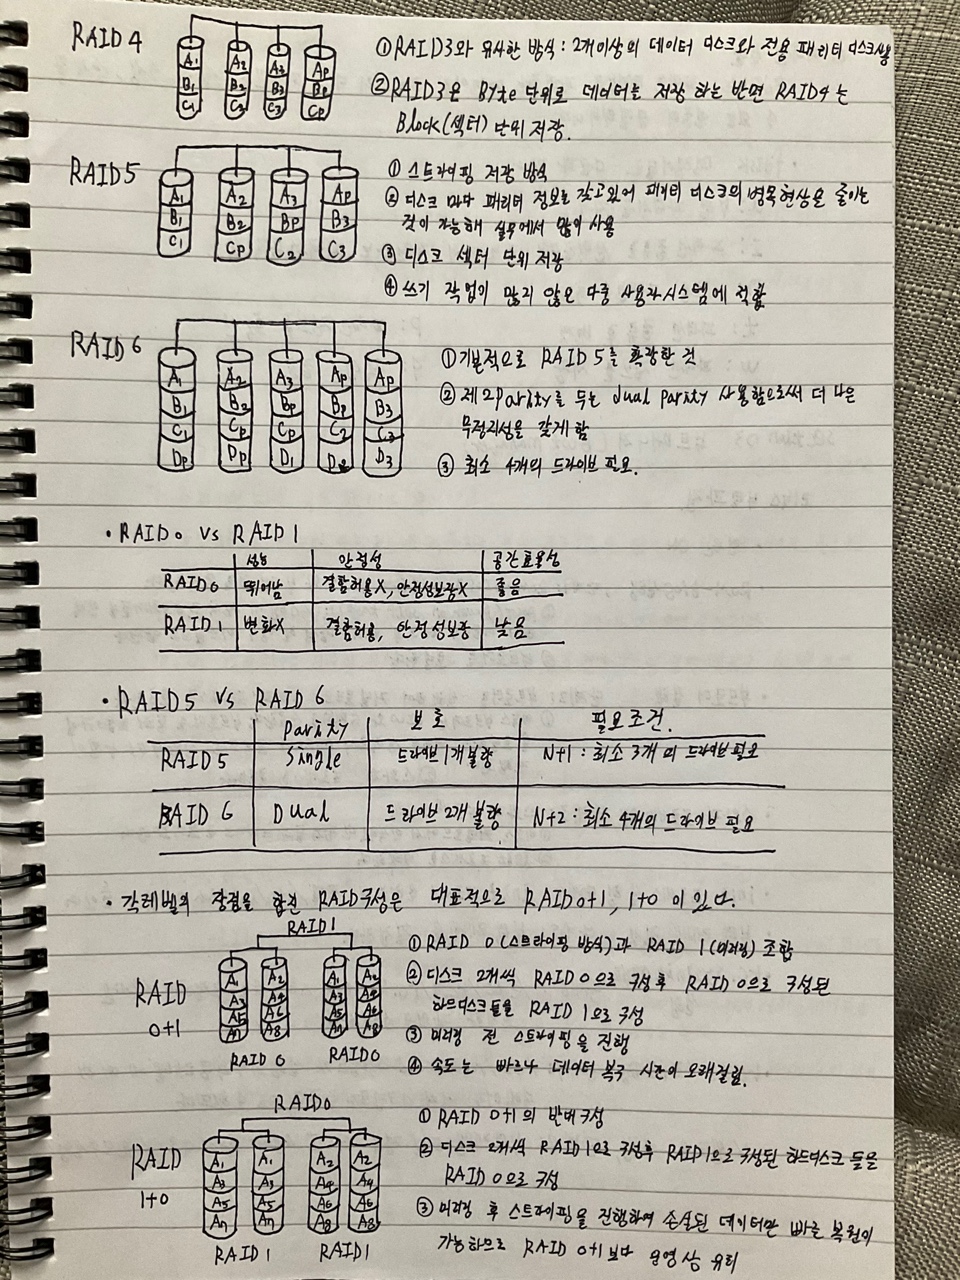 RAID 4
A1 A2 A3 Ap
B1 B2 B3 Bp
C1 C2 C3 Cp
① RAID3와 유사한 방식 : 2개이상의 데이터 디스크와 전용 패리티 디스크사용
② RAID3은 Byte 단위로 데이터를 저장 하는 반면 RAID4는
Block(섹터) 단위 저장.
RAID5
A1 A2 A3 Ap
B1 B2 Bp B3
C1 Cp C2 C3
① 스트라이핑 저장 방식
② 디스크 마다 패리티 정보를 갖고있어 패리티 디스크의 병목현상을 줄이는
것이 가능해 실무에서 많이 사용
③ 디스크 섹터 단위 저장
④ 쓰기 작업이 많지 않은 다중 사용자시스템에 적합
RAID 6
A1 A2 A3 Ap Ap
B1 B2 Bp Bp B3
C1 Cp Cp C2 C3
Dp Dp D1 D2 D3
① 기본적으로 RAID 5를 확장한 것
② 제2Parity를 두는 dual parity 사용함으로써 더 나은
무정지성을 갖게 함
③ 최소 4개의 드라이브 필요.
· RAID0 vs RAID1
성능 안정성 공간효율성
RAID0 뛰어남 결함허용X, 안정성보장X 좋음
RAID1 변화X 결함허용, 안정성보장 낮음
· RAID5 vs RAID 6
Parity 보호 필요조건.
RAID5 Single 드라이브1개불량 N+1 : 최소 3개의 드라이브필요
RAID 6 Dual 드라이브 2개 불량 N+2 : 최소 4개의 드라이브 필요
· 각레벨의 장점을 합친 RAID구성은 대표적으로 RAID0+1, 1+0 이 있다.
RAID1
RAID
0+1
A1 A2 A1 A2
A3 A4 A3 A4
A5 A6 A5 A6
An A8 An A8
RAID 0 RAID0
① RAID 0(스트라이핑 방식)과 RAID 1(미러링) 조합
② 디스크 2개씩 RAID0으로 구성후 RAID0으로 구성된
하드디스크들을 RAID 1으로 구성
③ 미러링 전 스트라이핑을 진행
④ 속도는 빠르나 데이터 복구 시간이 오래걸림.
RAID0
RAID
1+0
A1 A1 A2 A2
A3 A3 A4 A4
A5 A5 A6 A6
An An A8 A8
RAID 1 RAID1
① RAID 0+1의 반대구성
② 디스크 2개씩 RAID1으로 구성후 RAID1으로 구성된 하드디스크 들을
RAID 0으로 구성
③ 미러링 후 스트라이핑을 진행하여 손실된 데이터만 빠른 복원이
가능하므로 RAID 0+1보다 운영상 유리